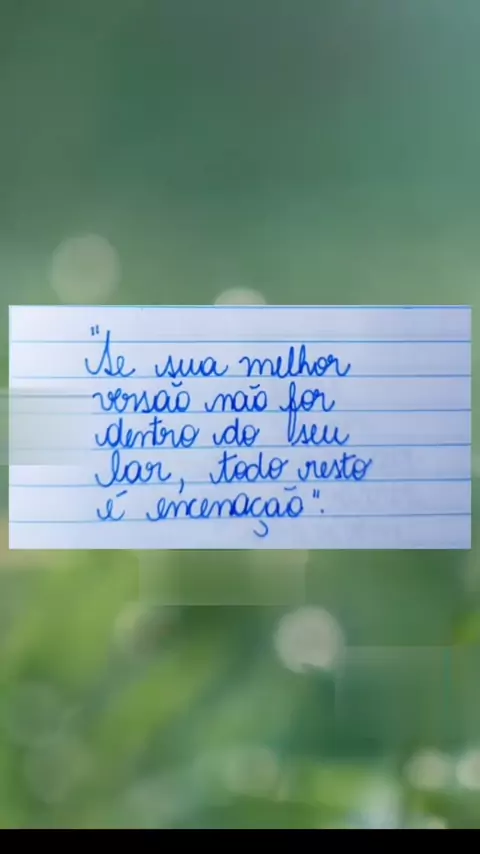 "Se sua melhor
versão não for
dentro do seu
lar, todo resto
é encenação".